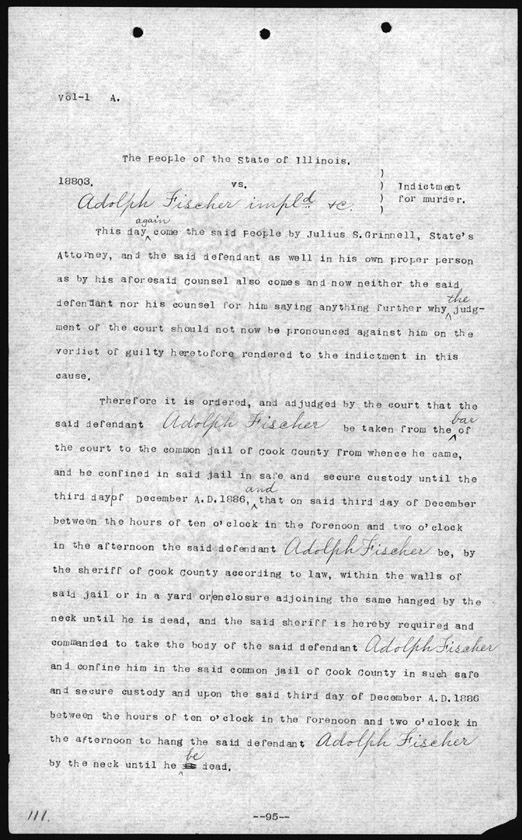 Vol-1 A.
The People of the State of Illinois.
18803. vs.
Adolph Fischer impld &c.
)
) Indictment
) for murder.
)
again
This day come the said People by Julius S. Grinnell, State's
Attorney, and the said defendant as well in his own proper person
as by his aforesaid counsel also comes and now neither the said
defendant nor his counsel for him saying anything further why the judg-
ment of the court should not now be pronounced against him on the
verdict of guilty heretofore rendered to the indictment in this
cause.
Therefore it is ordered, and adjudged by the court that the
said defendant Adolph Fischer be taken from the bar of
the court to the common jail of Cook County from whence he came,
and be confined in said jail in safe and secure custody until the
third day of December A.D.1886, and that on said third day of December
between the hours of ten o'clock in the forenoon and two o'clock
in the afternoon the said defendant Adolph Fischer be, by
the sheriff of Cook County according to law, within the walls of
said jail or in a yard or enclosure adjoining the same hanged by the
neck until he is dead, and the said sheriff is hereby required and
commanded to take the body of the said defendant Adolph Fischer
and confine him in the said common jail of Cook County in such safe
and secure custody and upon the said third day of December A.D.1886
between the hours of ten o'clock in the forenoon and two o'clock in
the afternoon to hang the said defendant Adolph Fischer
by the neck until he be dead.
111.
--95--